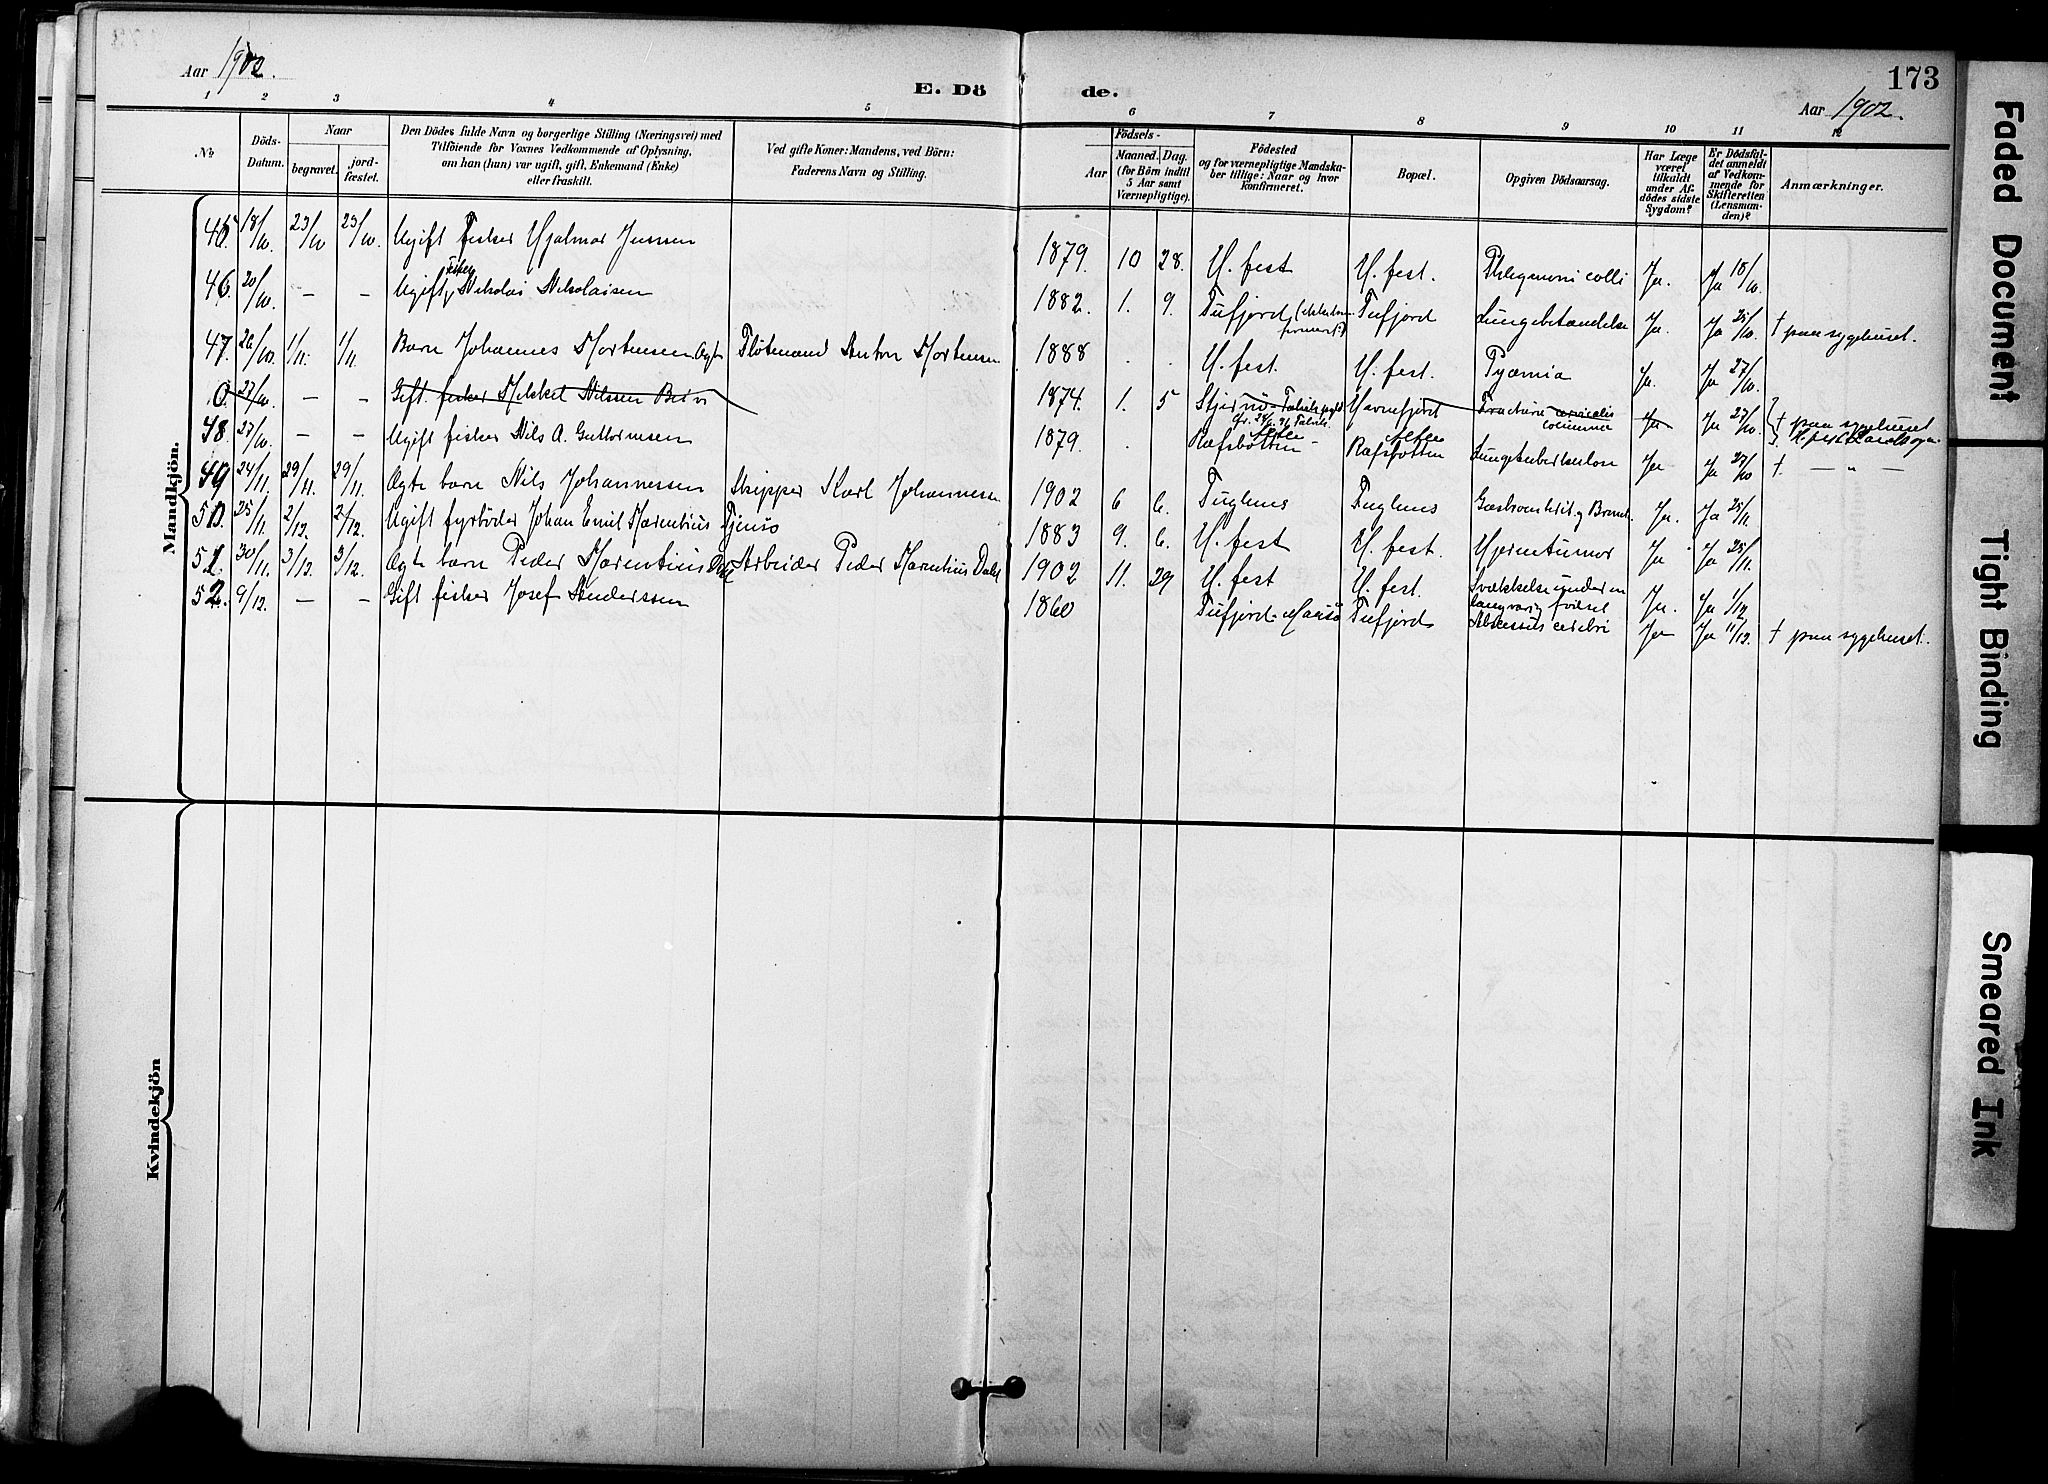 Aar 1902.
E. Döde.
173
Aar 1902.
1 2 3 4 5 6 7 8 9 10 11 12
No.
Döds-Datum.
Naar
begravet.
jord-fæstet.
Den Dödes fulde Navn og borgerlige Stilling (Næringsvei) med
Tilföiende for Voxnes Vedkommende af Oplysning,
om han (hun) var ugift, gift, Enkemand (Enke)
eller fraskilt.
Ved gifte Koner: Mandens, ved Börn:
Faderens Navn og Stilling.
Födsels-
Aar
Maaned. Dag.
(for Börn indtil
5 Aar samt
Værnepligtige).
Födested
og for værnepligtige Mandska-
ber tillige: Naar og hvor
konfirmeret.
Bopæl.
Opgiven Dödsaarsag.
Har Læge
været
tilkaldt
under Af-
dödes sidste
Sygdom?
Er Dödsfal-
det anmeldt
af Vedkom-
mende for
Skifteretten
(Lensman-
den)?
Anmærkninger.
Mandkjön.
45. 18/10. 23/10 23/10. Ugift fisker Hjalmar Jenssen 1879. 10 28. H.fest H.fest. Phlegmone colli Ja. Ja 18/10.
46. 20/10. — — Ugift fisker Nikolai Nikolaisen 1882. 1. 9. Tufjord (ikke kon-firmert?) Tufjord Lungebetændelse Ja. Ja 25/10. † paa sygehuset.
47. 26/10. 1/11. 1/11. Barn Johannes Mortensen Ægte Flötmand Anton Mortensen 1888 . . H.fest. H.fest. Pyæmia Ja. Ja 27/10.
0. 27/10. — — Gift fisker Mikkel Nilssen 1874. 1. 5 Stjernö Havnefjord Fractura columnæ cervicalis Ja Ja 27/10. † paa sygehuset
48. 27/10. — — Ugift fisker Nils A. Guttormsen 1879. . Rafsbotten Alten Rafsbotten Alten Lungetuberkulose Ja Ja 27/10 † — " —
49 24/11. 29/11. 29/11. Ægte barn Nils Johannessen Skipper Karl Johannesen 1902 6 6. Fuglenes Fuglenes Ja. Ja 25/11.
50. 25/11. 2/12. 2/12. Ugift fyrböder Johan Emil Marentius 1883 9. 6. H.fest H.fest. Hjernetumor Ja Ja 25/11.
51. 30/11. 3/12. 3/12. Ægte barn Peder Marentius Dahl Arbeider Peder Marentius Dahl 1902 11. 29 H.fest H.fest. Svækkelse under en langvarig födsel Ja. Ja 1/12
52. 9/12. — — Gift fisker Josef Anderssen 1860 Tufjord Maasö Tufjord Abscessus cerebri Ja Ja 11/12. † paa sygehuset.
Kvindekjön
Faded Document
Tight Binding
Smeared Ink